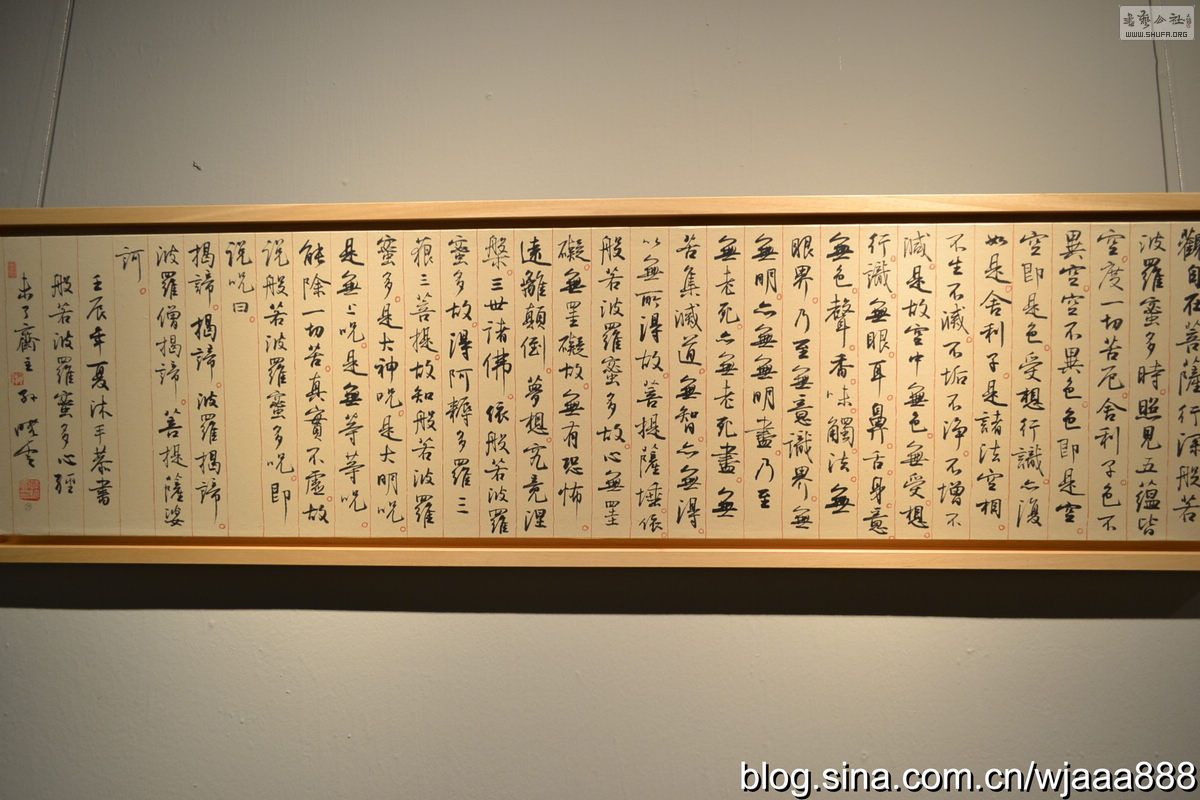 觀自在菩薩行深般若
波羅蜜多時照見五蘊皆
空度一切苦厄舍利子色不
異空空不異色色即是空
空即是色受想行識亦復
如是舍利子是諸法空相
不生不滅不垢不淨不增不
減是故空中無色無受想
行識無眼耳鼻舌身意
無色聲香味觸法無
眼界乃至無意識界無
無明亦無無明盡乃至
無老死亦無老死盡無
苦集滅道無智亦無得
以無所得故菩提薩埵依
般若波羅蜜多故心無罣
礙無罣礙故無有恐怖
遠離顛倒夢想究竟涅
槃三世諸佛依般若波羅
蜜多故得阿耨多羅三
藐三菩提故知般若波羅
蜜多是大神咒是大明咒
是無上咒是無等等咒
能除一切苦真實不虛故
說般若波羅蜜多咒即
說咒曰
揭諦揭諦波羅揭諦
波羅僧揭諦菩提薩婆
訶
壬辰年夏沐手恭書
般若波羅蜜多心經
未了齋主孫曉雲
書藝公社
WWW.SHUFA.ORG
blog.sina.com.cn/wjaaa888